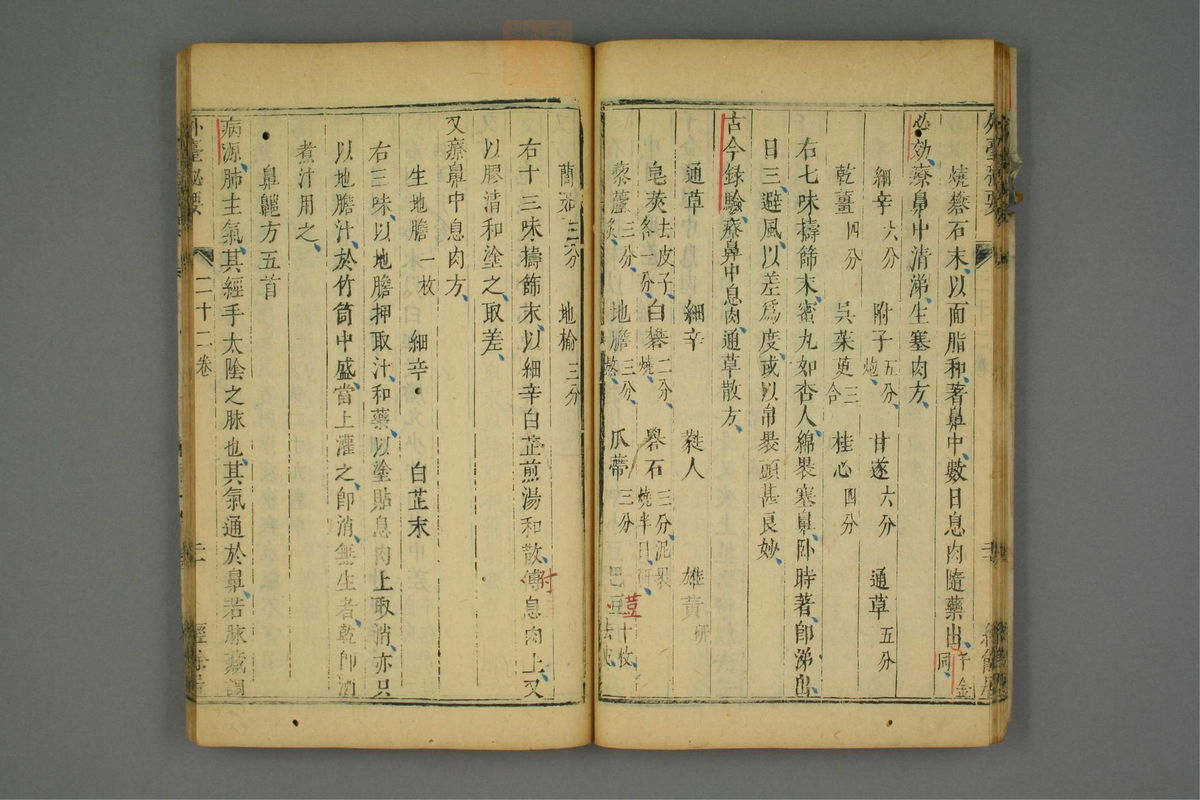 燒礬石末以面脂和著鼻中數日息肉隨藥出千金同
必効療鼻中清涕生塞肉方
細辛六分 附子五分炮 甘遂六分 通草五分
乾薑四分 吳茱萸三合 桂心四分
右七味擣篩末蜜丸如杏人綿裹塞鼻卧時著卽涕出
日三避風以差爲度或以帛裹頭甚良妙
古今録驗療鼻中息肉通草散方
通草 細辛 蕤人 雄黄研
皂莢去皮子各一分 白礬二分燒 礬石三分泥裹燒半日研
藜蘆三分炙 地膽三分熬 瓜蔕三分 巴豆十枚去皮
荳
䕡茹三分 地榆三分
右十三味擣篩末以細辛白芷煎湯和散傅息肉上又
付
以膠清和塗之取差
又療鼻中息肉方
生地膽一枚 細辛 白芷末
右三味以地膽押取汁和藥以塗貼息肉上取消亦只
以地膽汁於竹筒中盛當上灌之卽消無生者乾卽酒
煮汁用之
鼻齆方五首
病源肺主氣其經手太陰之脉也其氣通於鼻若脉藏調
外臺秘要 二十二卷